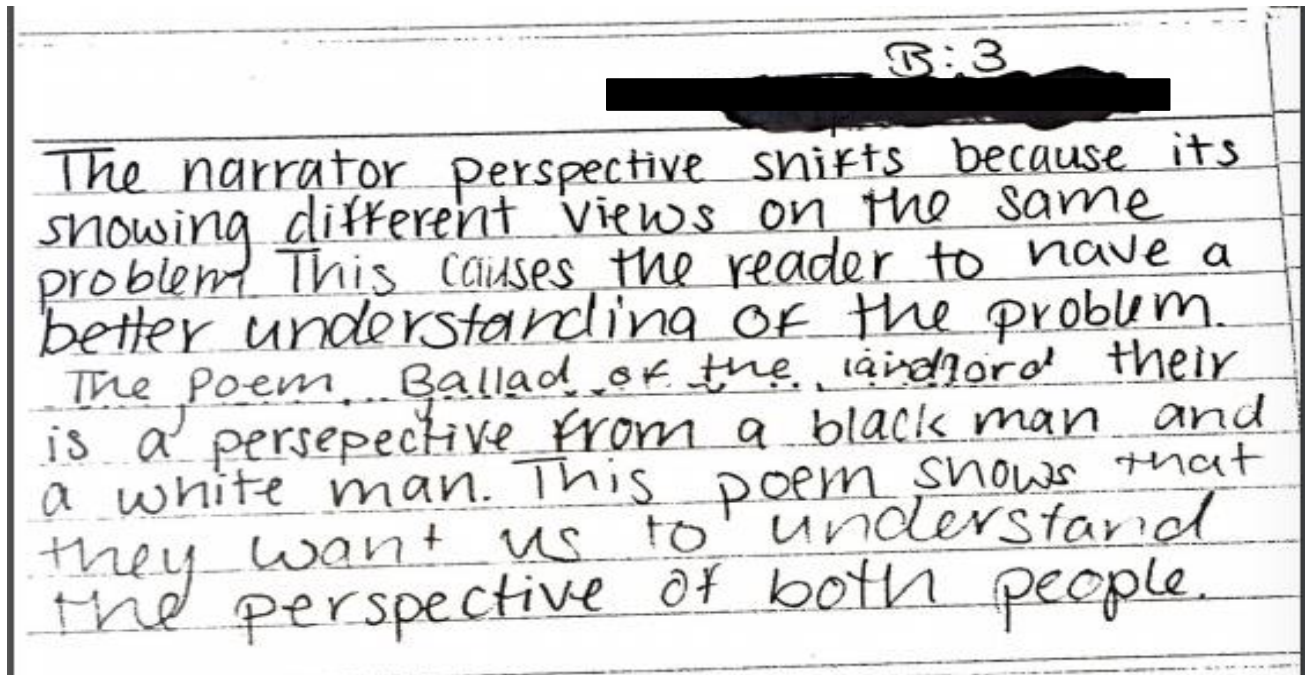 B:3
The narrator perspective shifts because its
showing different views on the same
problem This causes the reader to have a
better understanding of the problem.
The Poem, Ballad of the landlord their
is a persepective from a black man and
a white man. This poem shows that
they want us to understand
the perspective of both people.